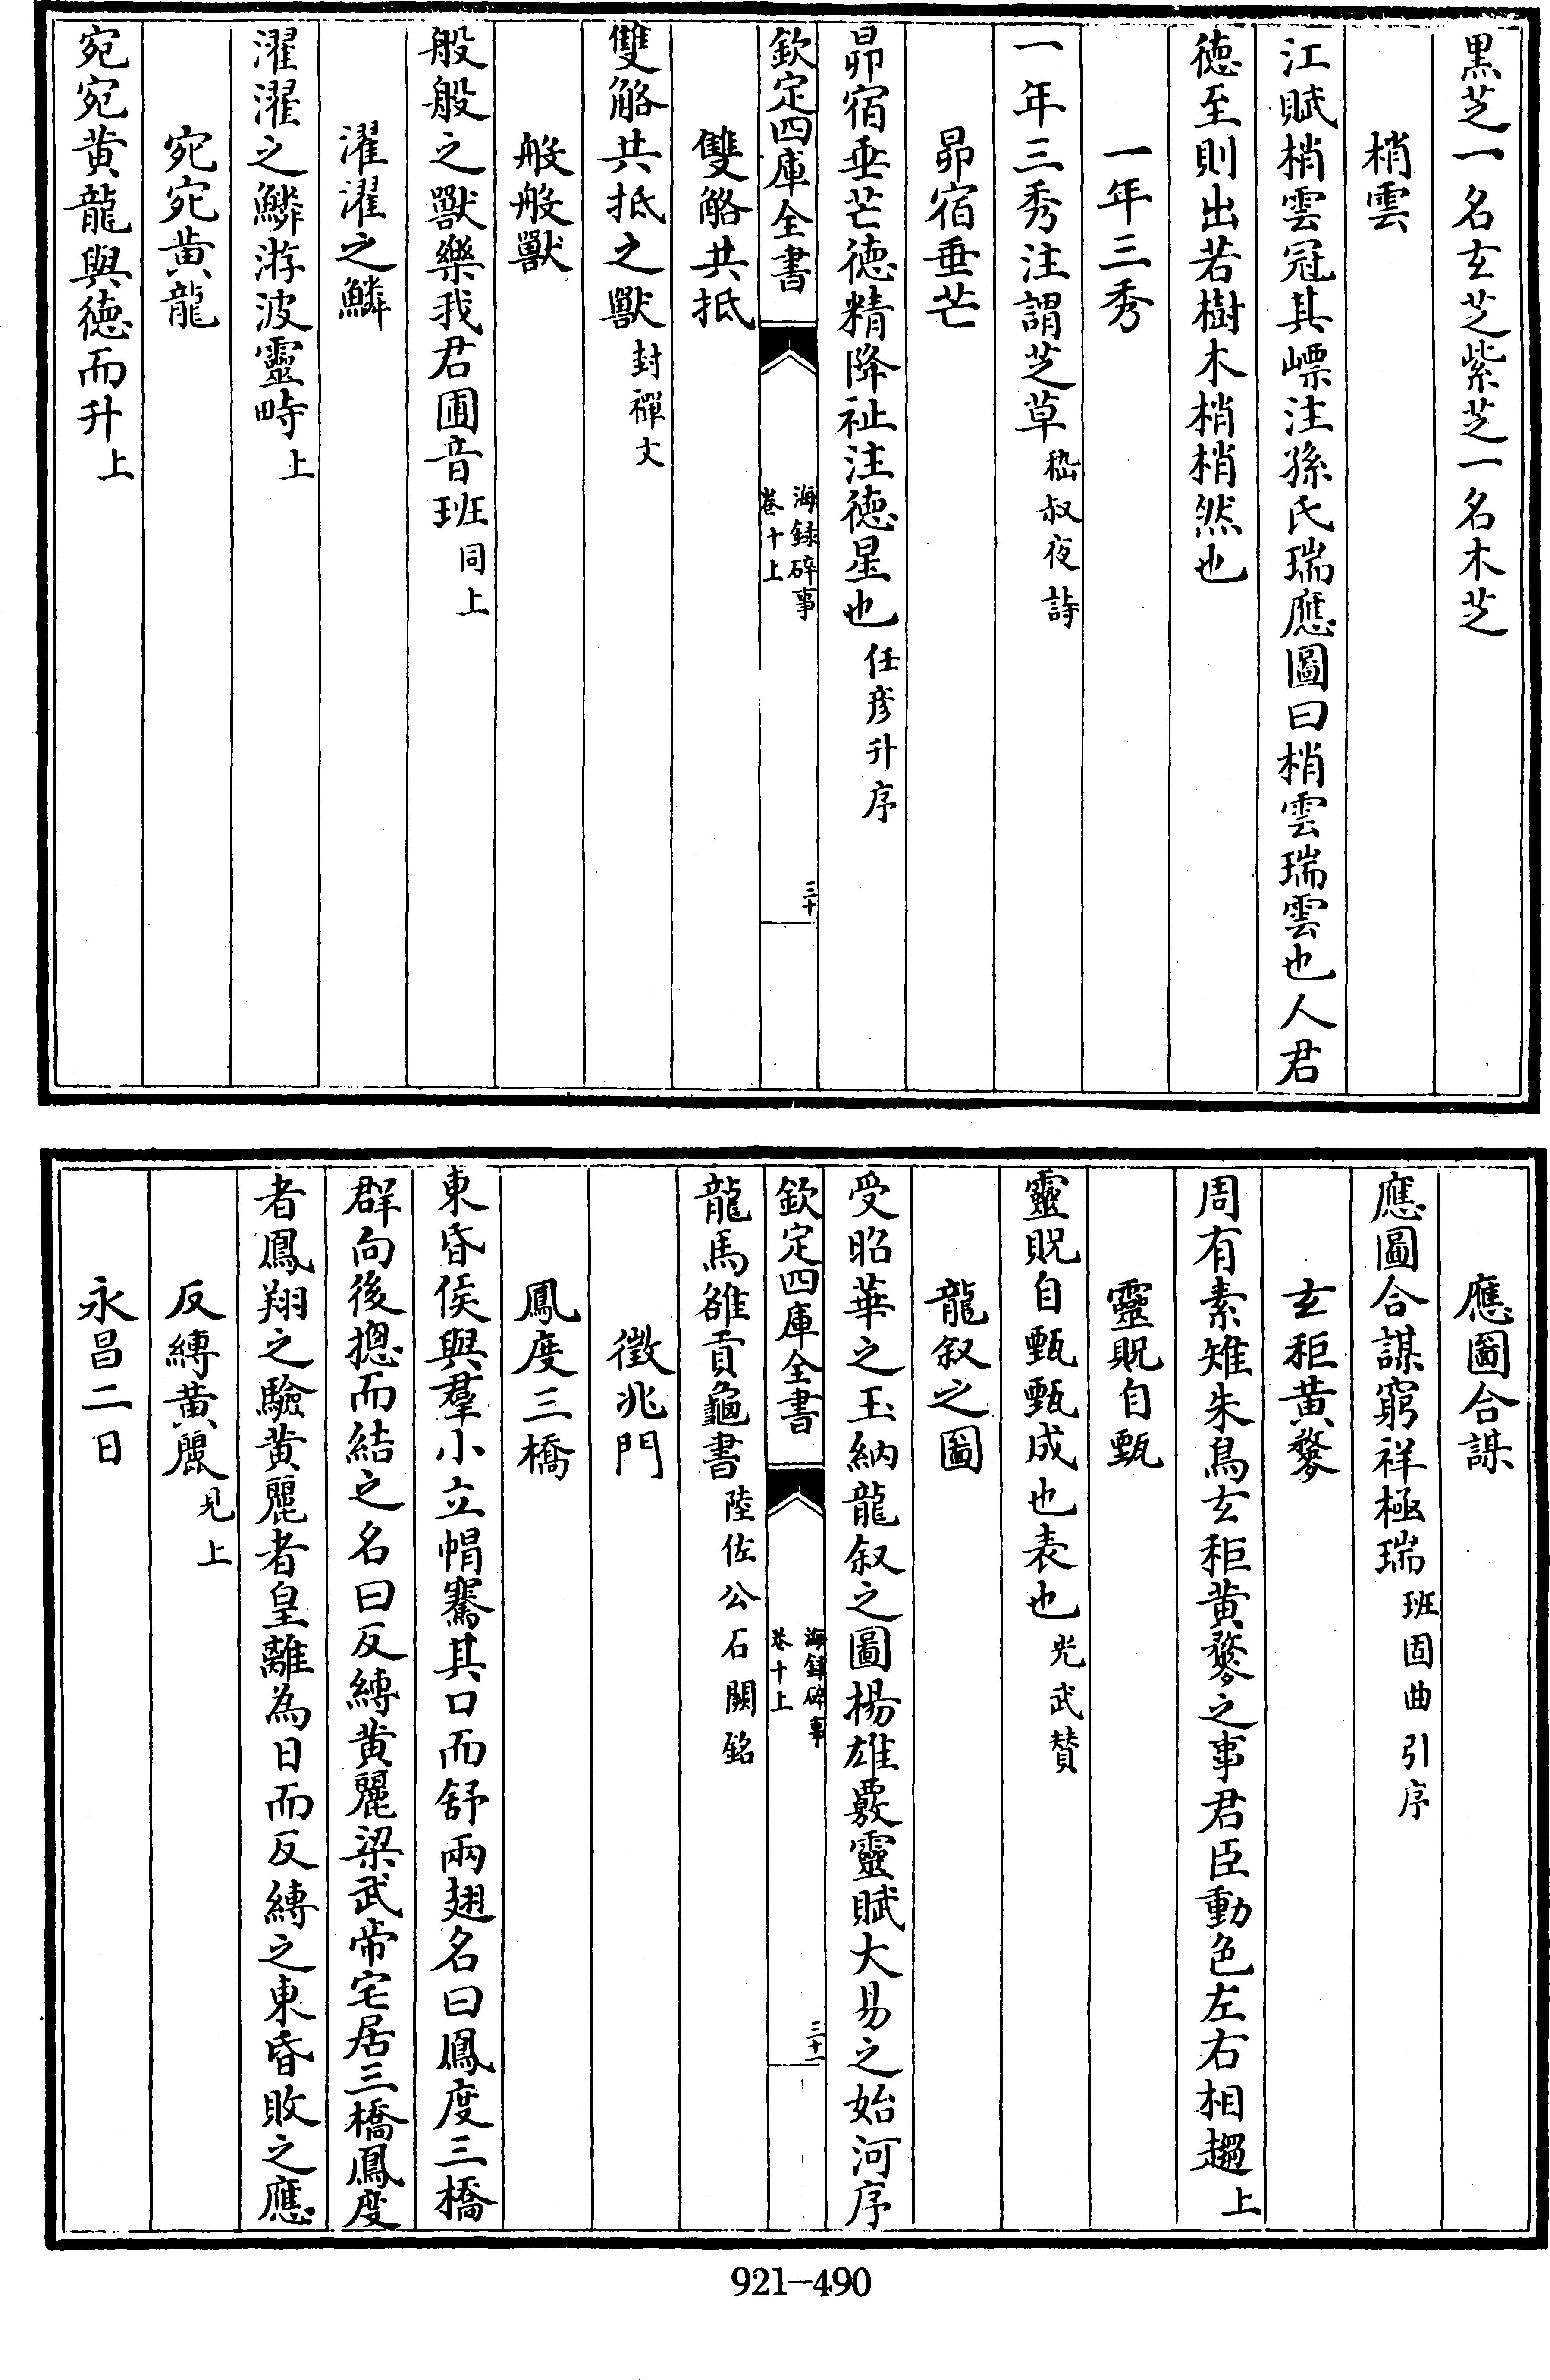 黒芝一名玄芝紫芝一名木芝
梢雲
江賦梢雲冠其嵊注孫氏瑞應圖曰梢雲瑞雲也人君
德至則出若樹木梢梢然也
一年三秀
一年三秀注謂芝草嵇叔夜詩
昴宿垂芒
昴宿垂芒德精降祉注德星也任彦升序
欽定四庫全書
海録碎事
卷十上
三十
雙觡共抵
雙觡共抵之獸封禪文
般般獸
般般之獸樂我君囿音班同上
濯濯之鱗
濯濯之鱗游波靈畤上
宛宛黄龍
宛宛黄龍與德而升上
應圖合諜
應圖合諜窮祥極瑞班固曲引序
玄秬黄䅘
周有素雉朱鳥玄秬黄䅘之事君臣動色左右相趨上
靈貺自甄
靈貺自甄甄成也表也光武賛
龍叙之圖
受昭華之玉納龍叙之圖楊雄覈靈賦大易之始河序
欽定四庫全書
海録碎事
卷十上
三十一
龍馬雒貢龜書陸佐公石闕銘
徵兆門
鳳度三橋
東昏侯與羣小立帽騫其口而舒兩翅名曰鳳度三橋
群向後摠而結之名曰反縳黄麗梁武帝宅居三橋鳳度
者鳳翔之驗黄麗者皇離為日而反縳之東昏敗之應
反縳黄麗見上
永昌二日
921-490